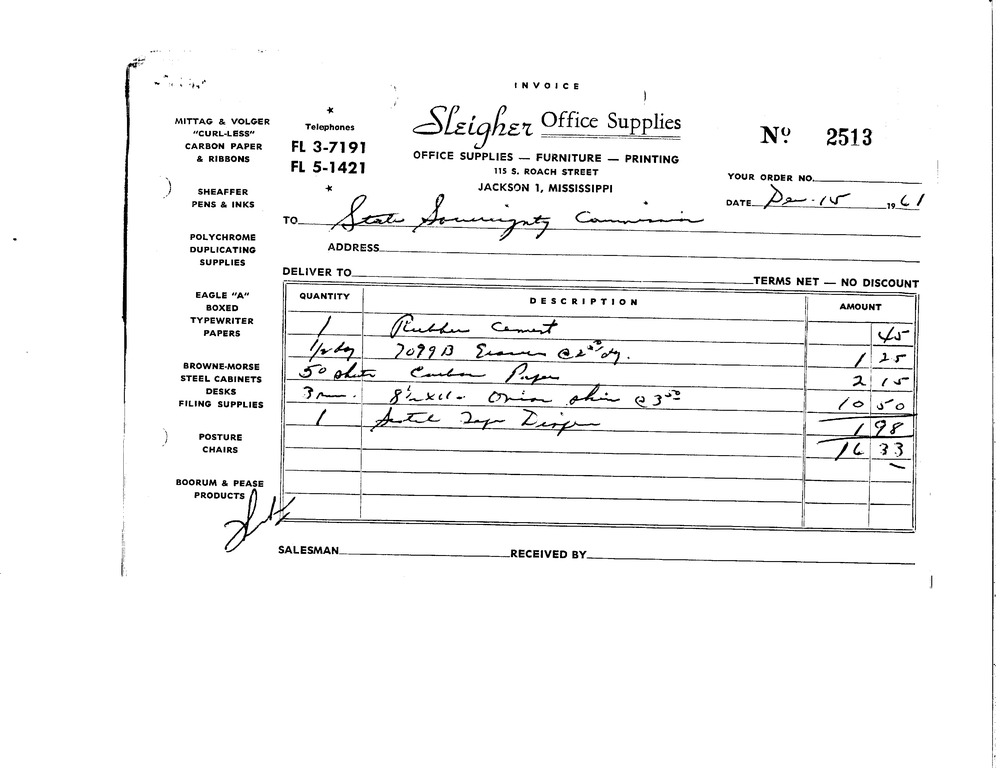 INVOICE
Sleigher Office Supplies
OFFICE SUPPLIES — FURNITURE — PRINTING
115 S. ROACH STREET
JACKSON 1, MISSISSIPPI
★
Telephones
FL 3-7191
FL 5-1421
★
Nº 2513
YOUR ORDER NO.
DATE Dec. 15 1961
TO State Sovereignty Commission
ADDRESS
DELIVER TO
TERMS NET — NO DISCOUNT
MITTAG & VOLGER
"CURL-LESS"
CARBON PAPER
& RIBBONS
SHEAFFER
PENS & INKS
POLYCHROME
DUPLICATING
SUPPLIES
EAGLE "A"
BOXED
TYPEWRITER
PAPERS
BROWNE-MORSE
STEEL CABINETS
DESKS
FILING SUPPLIES
POSTURE
CHAIRS
BOORUM & PEASE
PRODUCTS
QUANTITY DESCRIPTION AMOUNT
1 Rubber Cement 45
1/2 dz 7099B Erasers @ 2 50/dz. 1 25
50 shts Carbon Paper 2 15
3 rm. 8½ x 11 - Onion skin @ 3 50 10 50
1 Scotch Tape Dispen 1 98
16 33
SALESMAN RECEIVED BY